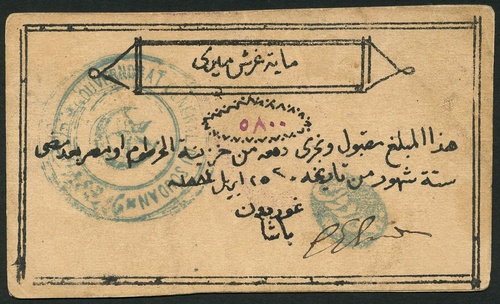 ماية غرش ميرى
٥٨٠٠
هذا المبلغ مقبول ويجرى دفعه من خزينة الخرطوم او مصر بعد مضى
ستة شهور من تاريخه ٢٥ ابريل ١٨٨٤
غوردون
باشا
GOUVERNORAT SOUDAN